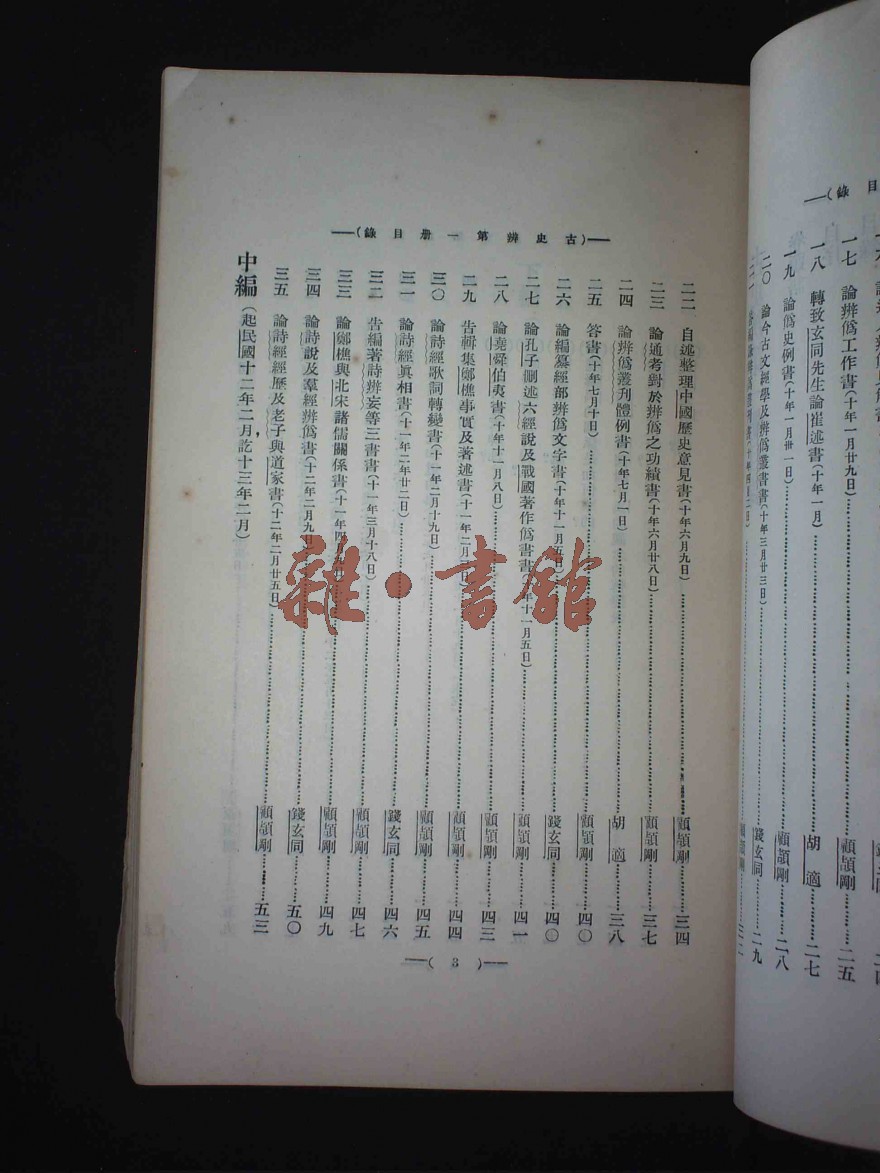 目錄)—
一七 論辨僞工作書(十年一月廿九日)……顧頡剛……二五
一八 轉致玄同先生論崔述書(十年一月)……胡適……二七
一九 論僞史例書(十年一月卅一日)……顧頡剛……二八
二〇 論今古文經學及辨僞叢書書(十年三月廿三日)……錢玄同……二九
—(古史辨第一册目錄)—
二二 自述整理中國歷史意見書(十年六月九日)……顧頡剛……三四
二三 論通考對於辨僞之功績書(十年六月廿八日)……顧頡剛……三七
二四 論辨僞叢刊體例書(十年七月一日)……胡適……三八
二五 答書(十年七月十日)……顧頡剛……四〇
二六 論編纂經部辨僞文字書(十年十一月五日)……錢玄同……四〇
二七 論孔子刪述六經說及戰國著作僞書書(十年十一月五日)……顧頡剛……四一
二八 論堯舜伯夷書(十年十一月八日)……顧頡剛……四三
二九 告輯集鄭樵事實及著述書(十一年二月……顧頡剛……四四
三〇 論詩經歌詞轉變書(十一年二月十九日)……顧頡剛……四五
三一 論詩經眞相書(十一年二月廿二日)……錢玄同……四六
三二 告編著詩辨妄等三書書(十一年三月十八日)……顧頡剛……四七
三三 論鄭樵與北宋諸儒關係書(十一年四月 日)……顧頡剛……四九
三四 論詩說及羣經辨僞書(十二年二月九日)……錢玄同……五〇
三五 論詩經經歷及老子與道家書(十二年二月廿五日)……顧頡剛……五三
中編(起民國十二年二月,訖十三年二月)
—( 3 )—
雜·書館